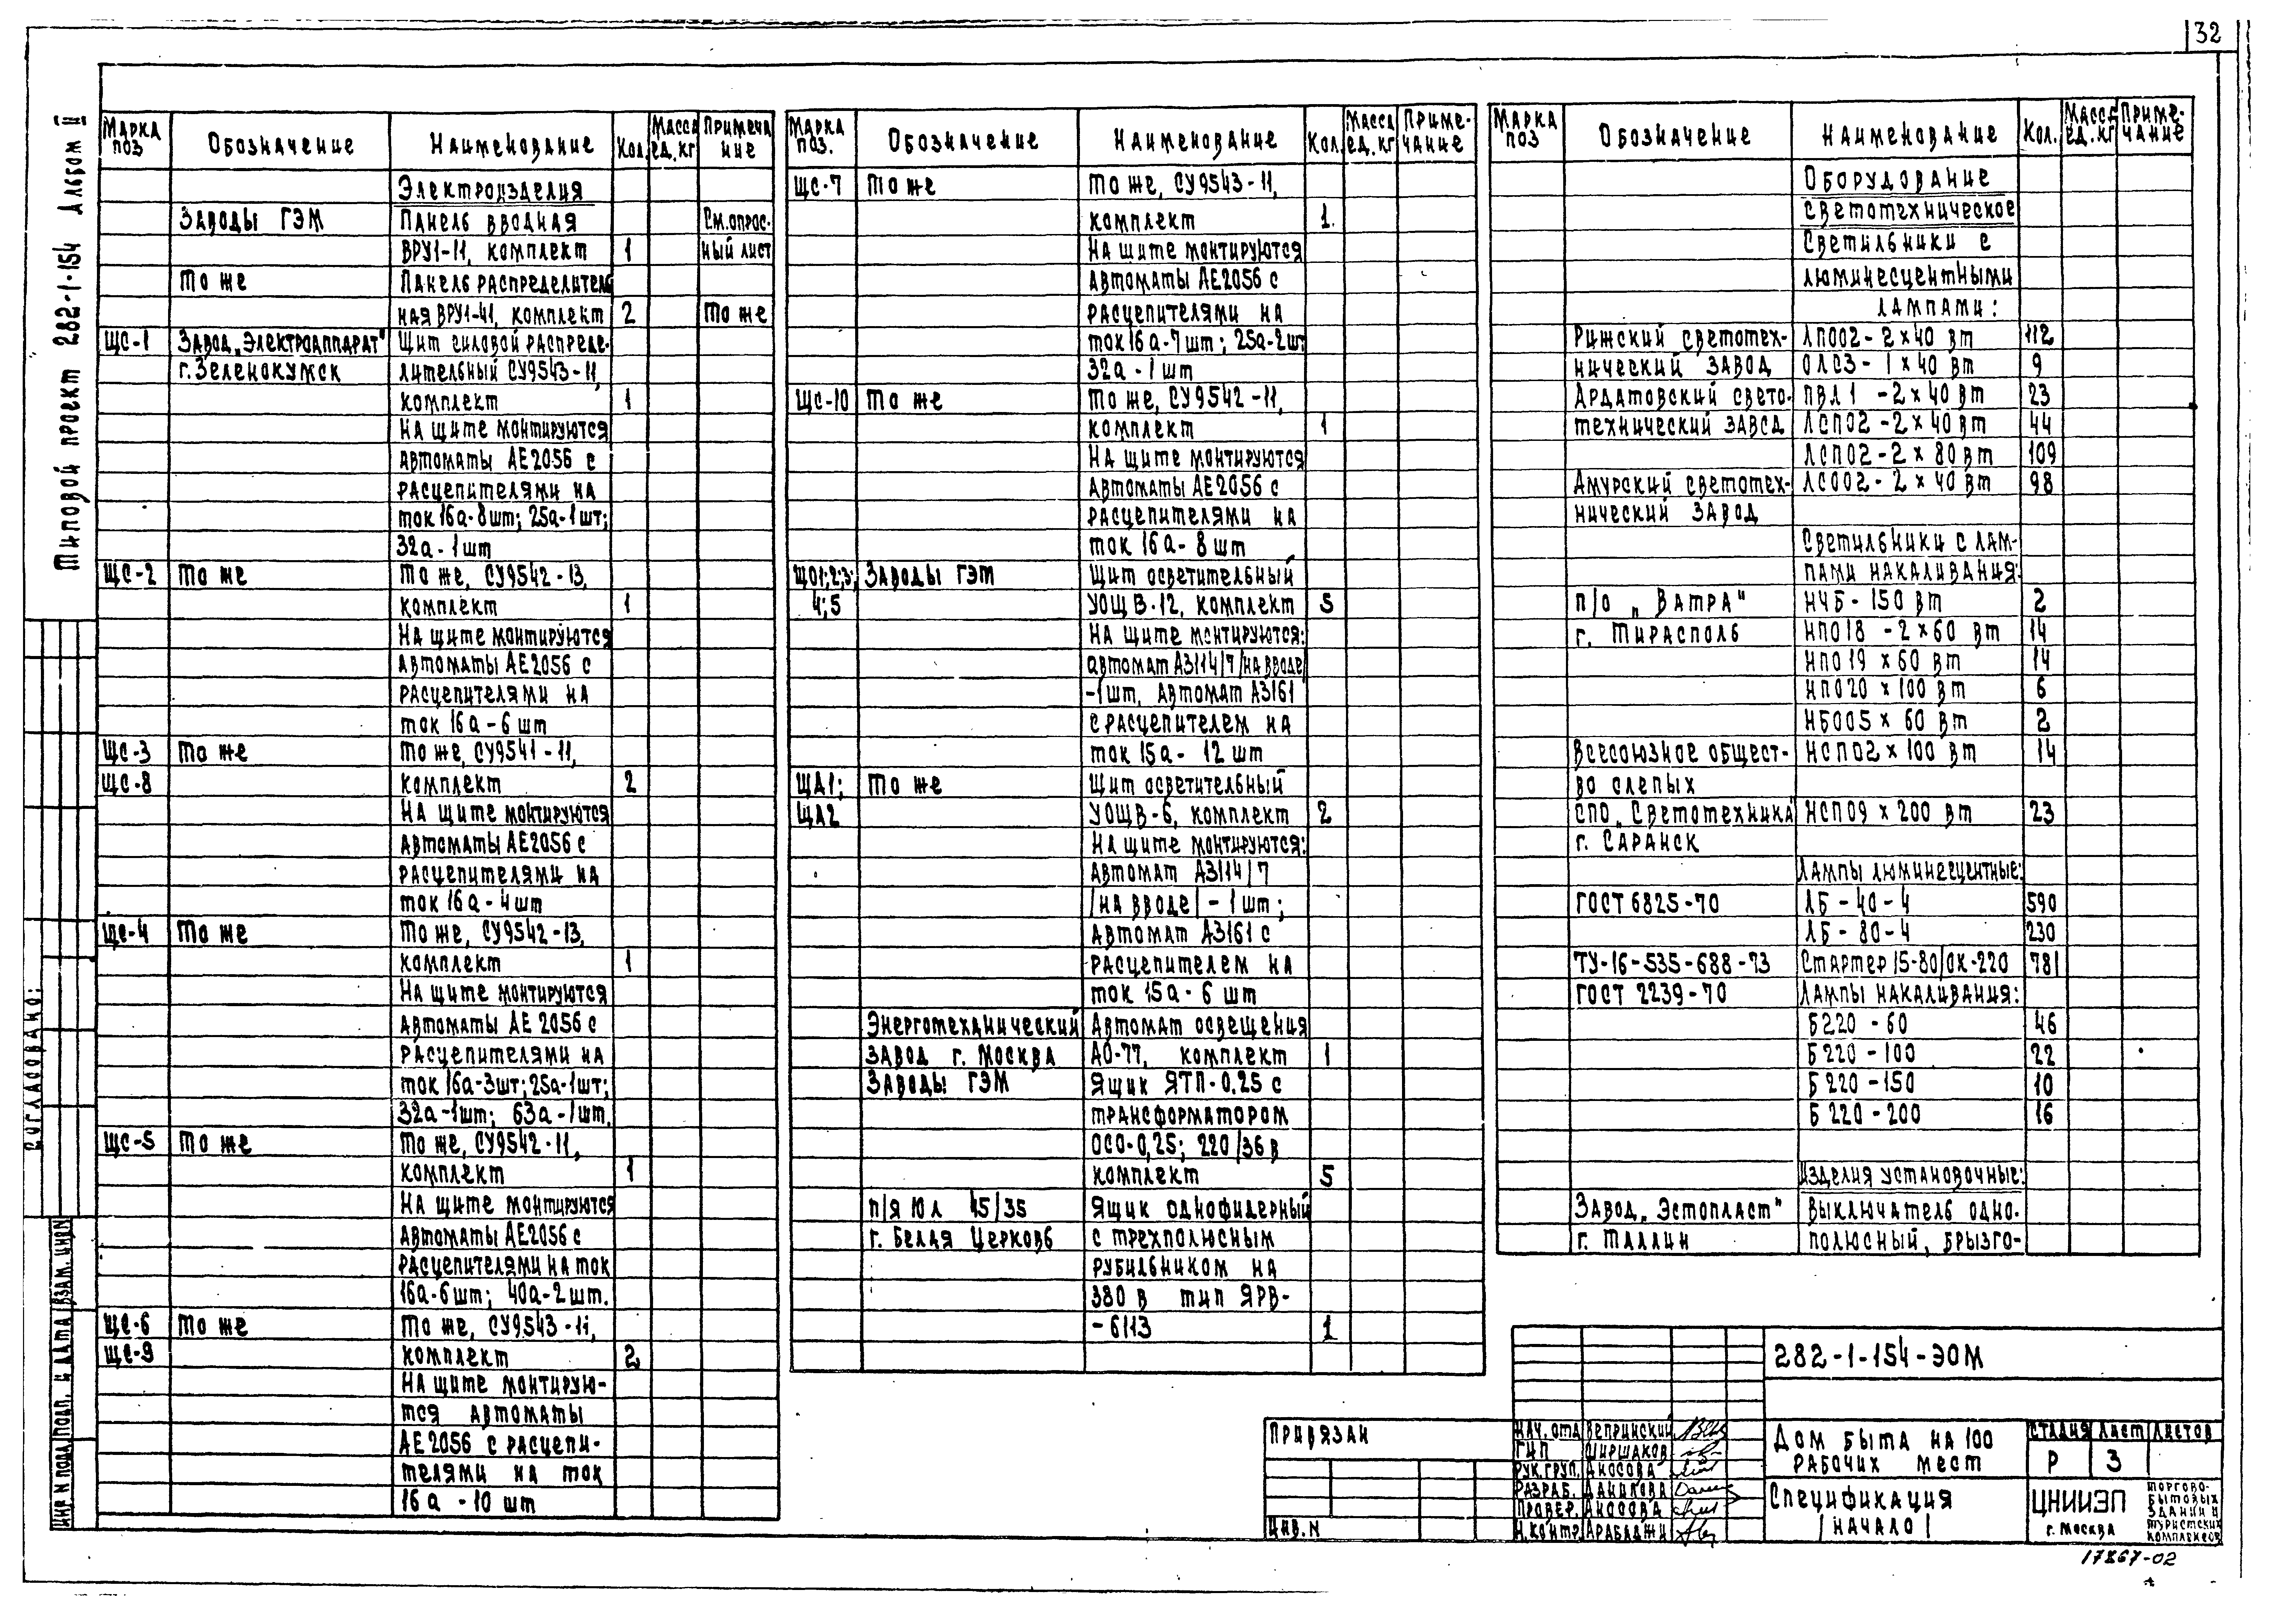 32
Типовой проект 282-1-154 Альбом II
Марка поз | Обозначение | Наименование | Кол. | Масса ед.кг | Примечание
Электроизделия
Заводы ГЭМ | Панель вводная | См.опрос-
ВРУ1-11, комплект | 1 | ный лист
То же | Панель распределитель
ная ВРУ1-41, комплект | 2 | То же
ЩС-1 | Завод „Электроаппарат" | Щит силовой распреде-
г.Зеленокумск | лительный СУ9543-11,
комплект | 1
На щите монтируются
автоматы АЕ2056 с
расцепителями на
ток 16а-8шт; 25а-1шт;
32а-1шт
ЩС-2 | То же | То же, СУ9542-13,
комплект | 1
На щите монтируются
автоматы АЕ2056 с
расцепителями на
ток 16а-6шт
ЩС-3 | То же | То же, СУ9541-11,
ЩС-8 | комплект | 2
На щите монтируются
автоматы АЕ2056 с
расцепителями на
ток 16а-4шт
ЩС-4 | То же | То же, СУ9542-13,
комплект | 1
На щите монтируются
автоматы АЕ 2056 с
расцепителями на
ток 16а-3шт; 25а-1шт;
32а-1шт; 63а-1шт.
ЩС-5 | То же | То же, СУ9542-11,
комплект | 1
На щите монтируются
автоматы АЕ2056 с
расцепителями на ток
16а-6шт; 40а-2шт.
ЩС-6 | То же | То же, СУ9543-11,
ЩС-9 | комплект | 2
На щите монтирую-
тся автоматы
АЕ2056 с расцепи-
телями на ток
16а -10 шт
Марка поз. | Обозначение | Наименование | Кол. | Масса ед.кг | Приме-чание
ЩС-7 | То же | То же, СУ9543-11,
комплект | 1.
На щите монтируются
автоматы АЕ2056 с
расцепителями на
ток 16а-7шт; 25а-2шт
32а-1шт
ЩС-10 | То же | То же, СУ9542-11,
комплект | 1
На щите монтируются
автоматы АЕ2056 с
расцепителями на
ток 16а-8шт
ЩО1;2;3; | Заводы ГЭМ | Щит осветительный
4;5 | УОЩВ-12, комплект | 5
На щите монтируются:
автомат А3114/7/на вводе/
-1шт, автомат А3161
с расцепителем на
ток 15а- 12 шт
ЩА1; | То же | Щит осветительный
ЩА2 | УОЩВ-6, комплект | 2
На щите монтируются:
автомат А3114/7
/на вводе/-1шт;
автомат А3161 с
расцепителем на
ток 15а-6 шт
Энерготехнический | Автомат освещения
завод г. Москва | АО-77, комплект | 1
Заводы ГЭМ | Ящик ЯТП-0,25 с
трансформатором
ОСО-0,25; 220/36в
комплект | 5
п/я Юл 45/35 | Ящик однофидерный
г. Белая Церковь | с трехполюсным
рубильником на
380 в тип ЯРВ-
-6113 | 1
Марка поз | Обозначение | Наименование | Кол. | Масса ед.кг | Приме-чание
Оборудование
светотехническое
Светильники с
люминесцентными
лампами:
Рижский светотех- | ЛПО02-2х40 вт | 112
нический завод | ОЛСЗ-1х40 вт | 9
Ардатовский свето- | ПВЛ1 -2х40 вт | 23
технический завод | ЛСП02-2х40вт | 44
ЛСП02-2х80вт | 109
Амурский светотех- | ЛСО02-2х40 вт | 98
нический завод
Светильники с лам-
пами накаливания:
п/о „Ватра" | НЧБ-150 вт | 2
г. Тирасполь | НПО18 -2х60 вт | 14
НПО19 х 60 вт | 14
НПО20 х 100 вт | 6
НБО05х 60 вт | 2
Всесоюзное общест- | НСП02х100 вт | 14
во слепых
СПО „Светотехника | НСП09 х 200 вт | 23
г. Саранск
Лампы люминесцентные:
ГОСТ 6825-70 | ЛБ-40-4 | 590
ЛБ-80-4 | 230
ТУ-16-535-688-73 | Стартер 15-80/ск-220 | 781
ГОСТ 2239-70 | Лампы накаливания:
Б220-60 | 46
Б220-100 | 22
Б220-150 | 10
Б220-200 | 16
Изделия установочные:
Завод „Эстопласт" | Выключатель одно-
г. Таллин | полюсный, брызго-
Согласовано:
Инв N подл | Подп. и дата | Взам. инв N
Привязан
Инв. N
Нач. отд | Вепринский
ГИП | Ширшаков
Рук.груп. | Аносова
Разраб. | Данилова
Провер. | Аносова
Н.контр. | Арабаджи
282-1-154-ЭОМ
Дом быта на 100
рабочих мест
Стадия | Лист | Листов
Р | 3
Спецификация
/начало/
ЦНИИЭП
г. Москва
торгово-
бытовых
зданий и
туристских
комплексов
17867-02